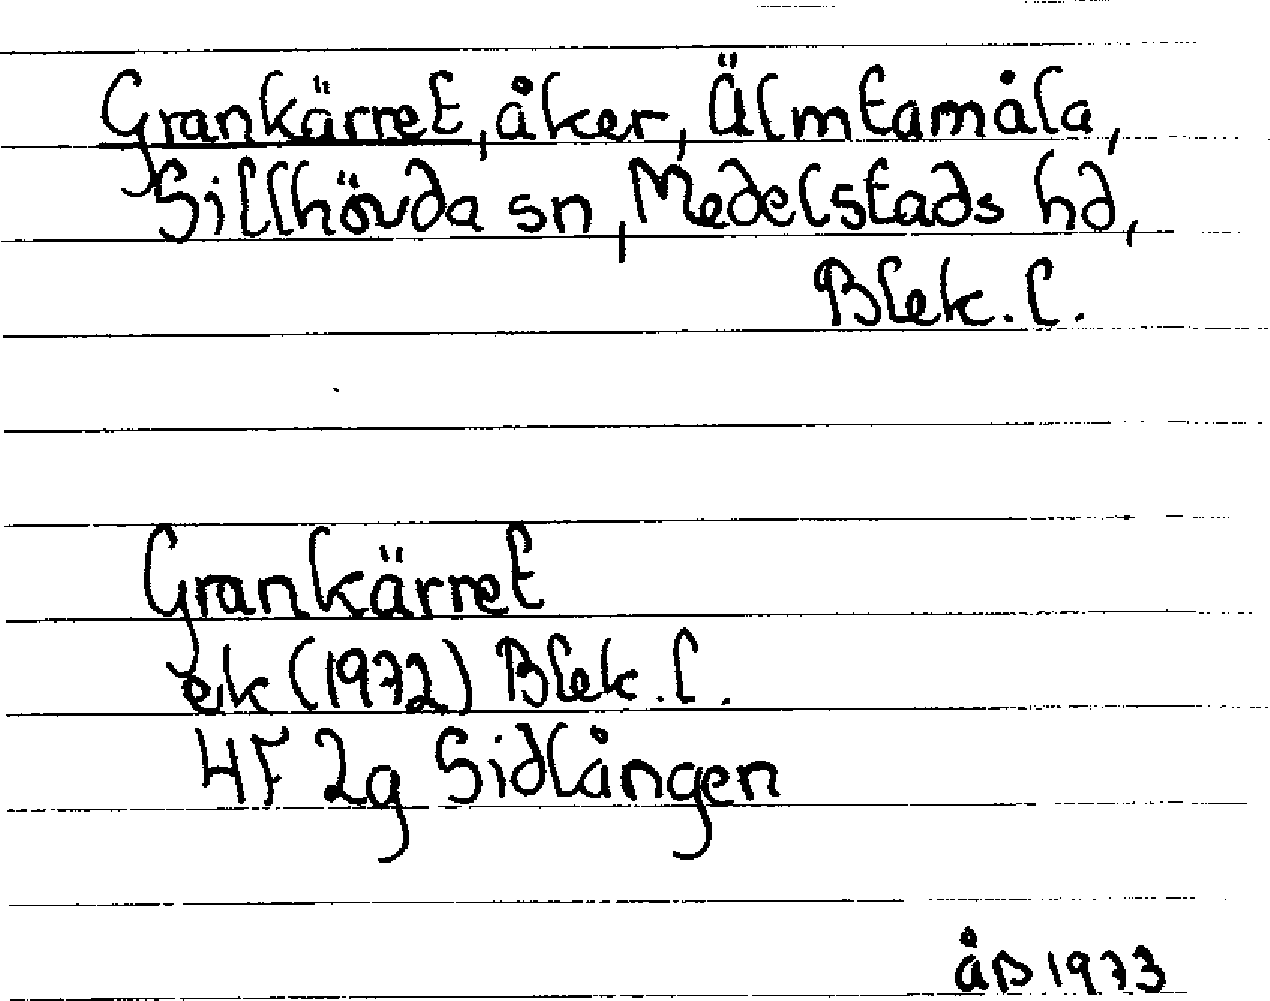 Grankärret, åker, Älmtamåla,
Sillhövda sn, Medelstads hd,
Blek. l.
Grankärret
ek (1972) Blek. l.
4F 2g Sidlången
åD 1973